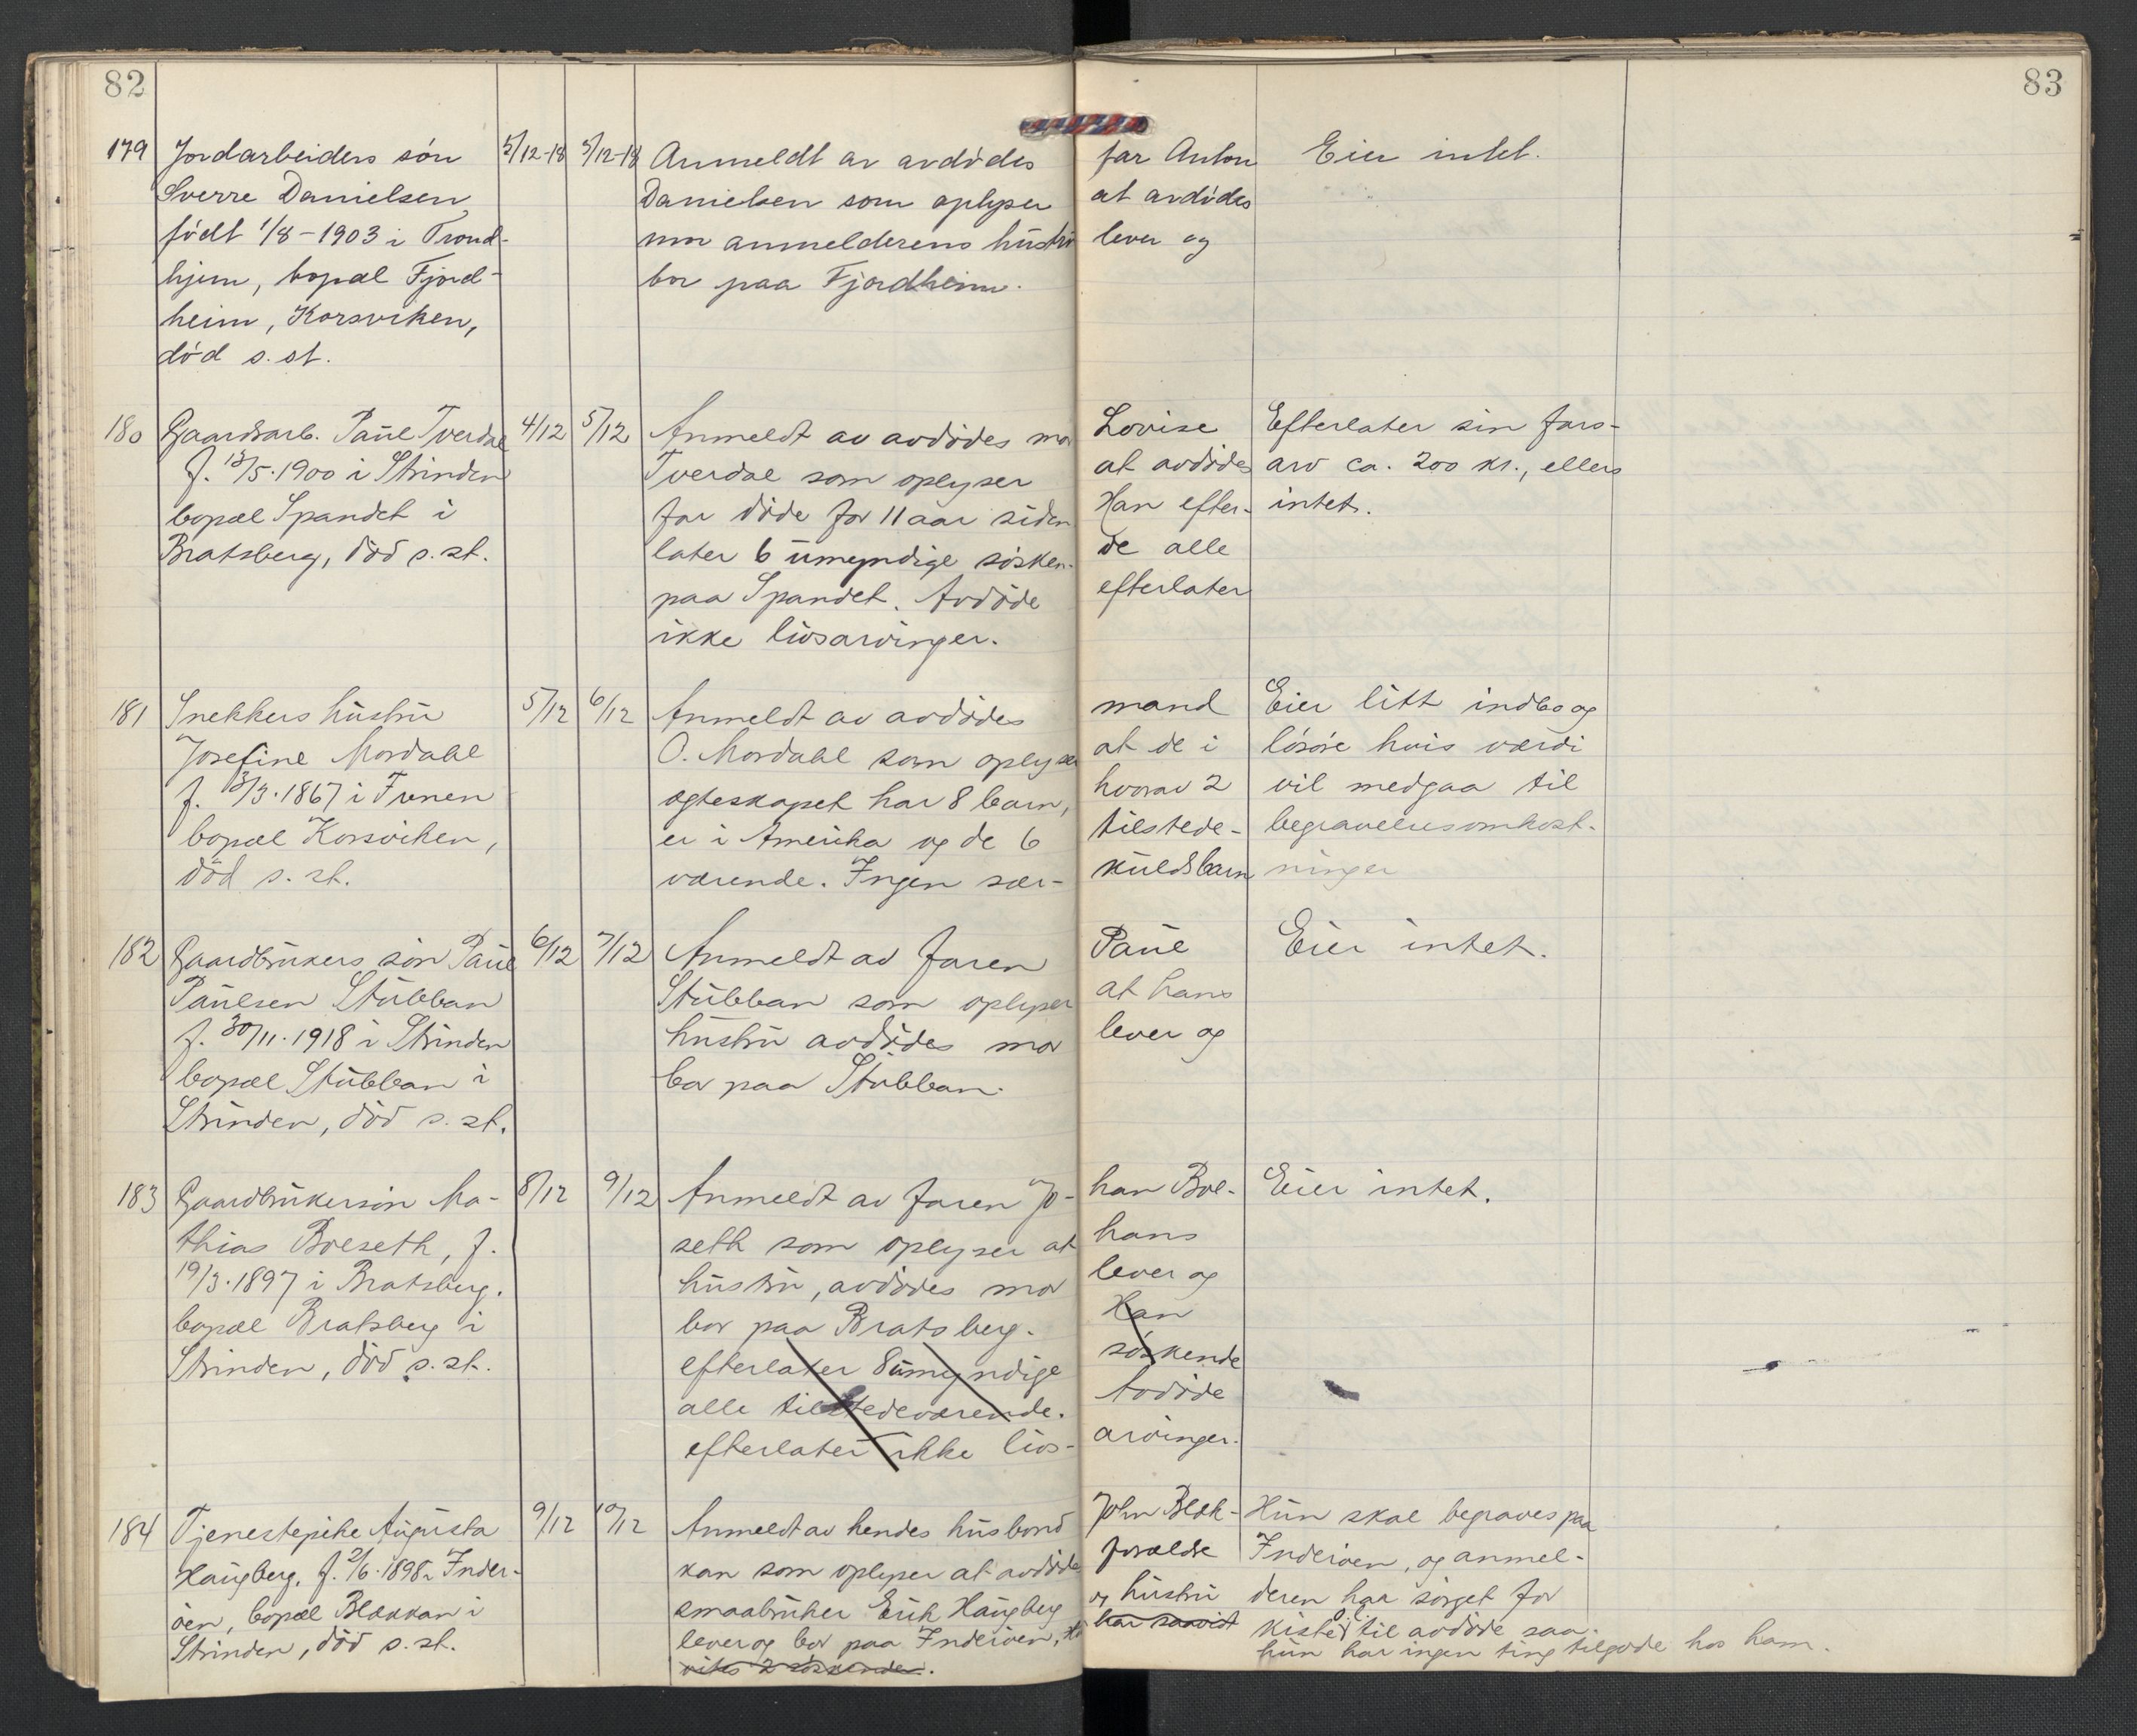 82
83
179 Jordarbeiders søn 5/12-18 5/12-18 Anmeldt av avdødes far Anton Eier intet.
Sverre Danielsen Danielsen som oplyser at avdødes
født 1/8-1903 i Trond- mor anmelderens hustru lever og
hjem, bopæl Fjord- bor paa Fjordheim.
heim, Korsviken,
død s. st.
180 Gaardsarb. Paul Tverdal 4/12 5/12 Anmeldt av avdødes mor Lovise Efterlater sin fars-
f. 13/5.1900 i Strinden Tverdal som oplyser at avdødes arv ca. 200 kr., ellers
bopæl Spandet i far døde for 11 aar siden Han efter- intet.
Bratsberg, død s. st. later 6 umyndige søsken- de alle
paa Spandet. Avdøde efterlater
ikke livsarvinger.
181 Snekkers hustru 5/12 6/12 Anmeldt av avdødes mand Eier litt indbo og
Josefine Mordahl O. Mordahl som oplyser at de i løsøre hvis værdi
f. 3/3.1867 i Frænen egteskapet har 8 barn, hvorav 2 vil medgaa til
bopæl Korsviken, er i Amerika og de 6 tilstede- begravelsesomkost-
død s. st. værende. Ingen sær- kuldsbarn ninger
182 Gaardbrukers søn Paul 6/12 7/12 Anmeldt av faren Paul Eier intet.
Paulsen Stubban Stubban som oplyser at hans
f. 30/11.1918 i Strinden hustru avdødes mor lever og
bopæl Stubban i bor paa Stubban.
Strinden, død s. st.
183 Gaardbrukersøn Ma- 8/12 9/12 Anmeldt av faren Jo- han Bol- Eier intet.
thias Bolseth, f. seth som oplyser at hans
19/3.1897 i Bratsberg. hustru, avdødes mor lever og
bopæl Bratsberg i bor paa Bratsberg. Han
Strinden, død s. st. efterlater 8 umyndige søskende
alle tilstedeværende. Avdøde
efterlater ikke livs- arvinger.
184 Tjenestepike Augusta 9/12 10/12 Anmeldt av hendes husbond John Blæk- Hun skal begraves paa
Haugberg, f. 2/6.1898 i Inder- kan som oplyser at avdødes forældre Inderøen, og anmel-
øen, bopæl Blækkan i smaabruker Erik Haugberg og hustru deren har sørget for
Strinden, død s. st. lever og bor paa Inderøen, har saavidt kiste o. l. til avdøde saa
vites 2 søskende. hun har ingen ting tilgode hos ham.